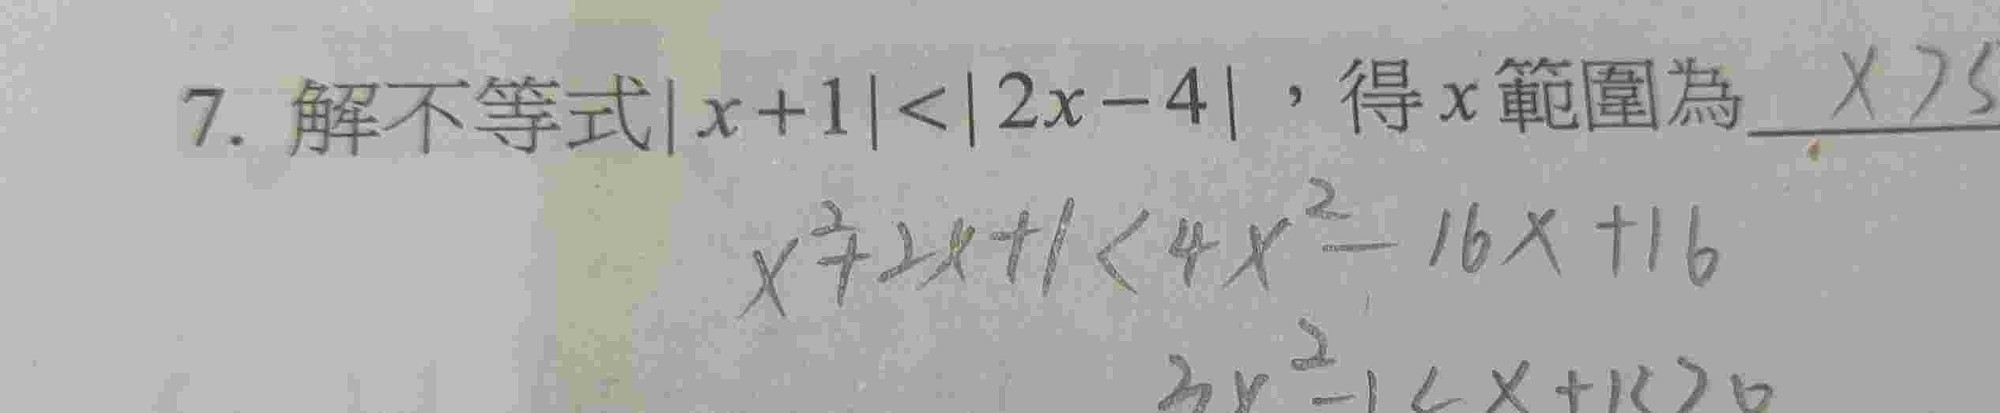 7. 解不等式|x+1|<|2x-4|，得x範圍為 x>5
x²+2x+1<4x²-16x+16
3x²-1 x+1 >0